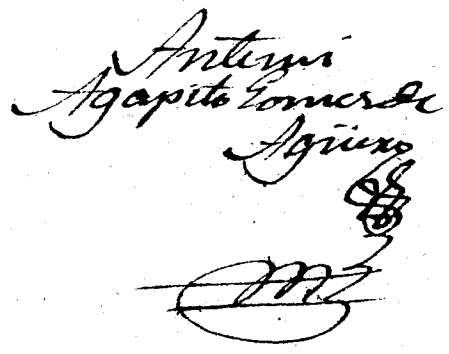 Antemi
Agapito Gomes de
Agüero